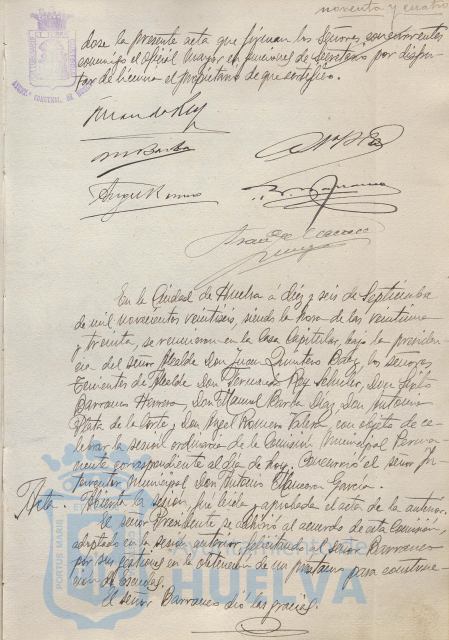 noventa y cuatro
dose la presente acta que firman los Señores concurrentes
conmigo el oficial mayor en funciones de Secretario por disfru-
tar de licencia el propietario de que certifico.
M Barba
Angel Romero
En la Ciudad de Huelva á diez y seis de Septiembre
de mil novecientos veintiseis, siendo la hora de las veintiuna
y treinta, se reunieron en la Casa Capitular, bajo la presiden-
cia del señor Alcalde Don Juan Quintero Baez los señores
Tenientes de Alcalde Don Fernando Rey Don
Barranco Herrero, Don Manuel Barba Diaz, Don Antonio
Plata de la Corte y Don Angel Romero Valero con objeto de ce-
lebrar la sesion ordinaria de la Comisión Municipal Perma-
nente correspondiente al dia de hoy. Concurrió el señor In-
terventor Municipal Don Antonio García.
Acta. Abierta la sesión, fué leida y aprobada el acta de la anterior.
El señor Presidente se adhirió al acuerdo de esta Comisión,
adoptado en la sesión anterior felicitando al señor Barranco
por sus gestiones en la obtención de un préstamo para construc-
ción de escuelas.
El señor Barranco dió las gracias.
PORTUS MARIS
Ayuntamiento de
HUELVA